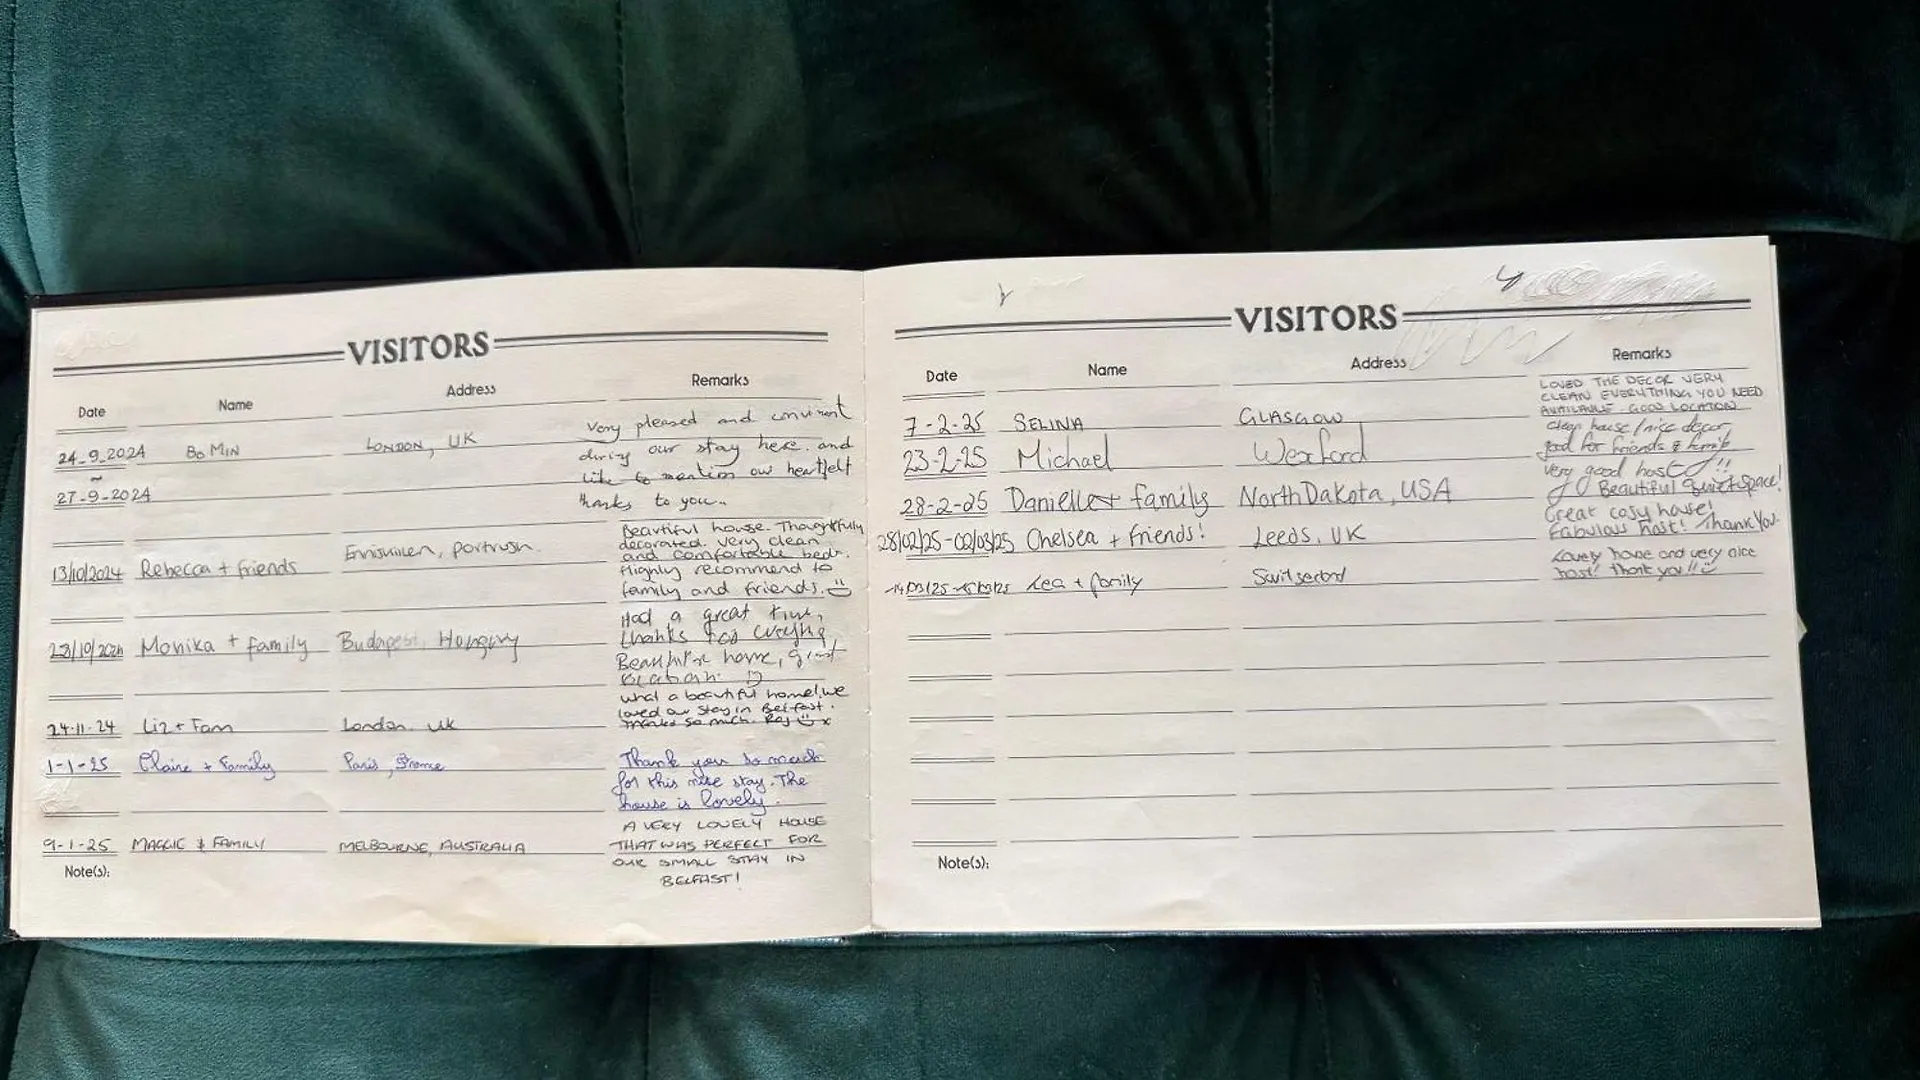 VISITORS
Date Name Address Remarks
24-9-2024 BO MIN LONDON, UK Very pleased and convinent
~ during our stay here. and
27-9-2024 like to mention our heartfelt
thanks to you..
Beautiful house. Thoughtfully
decorated. Very clean
and comfortable beds.
13/10/2024 Rebecca + friends Enniskillen, portrush. Highly recommend to
family and friends.
Had a great time,
thanks for
23/10/2024 Monika + family Budapest, Hungary Beautiful home, great
location.
What a beautiful home! We
loved our stay in Belfast.
24.11.24 Liz + Fam London. UK Thanks so much. x
1-1-25 Claire + Family Paris, France Thank you so much
for this nice stay. The
house is lovely.
A VERY LOVELY HOUSE
9-1-25 MAGGIE & FAMILY MELBOURNE, AUSTRALIA THAT WAS PERFECT FOR
OUR SMALL STAY IN
BELFAST!
Note(s):
VISITORS
Date Name Address Remarks
LOVED THE DECOR VERY
CLEAN EVERYTHING YOU NEED
7-2-25 SELINA GLASGOW AVAILABLE GOOD LOCATION
Clean house/nice decor,
23-2-25 Michael Wexford good for friends & family
very good host!!
28-2-25 Danielle + family North Dakota, USA Beautiful quiet space!
Great cosy house!
28/02/25-02/03/25 Chelsea + friends! Leeds, UK Fabulous host! Thank You
Lovely house and very nice
Lea + family host! Thank you!!
Note(s):